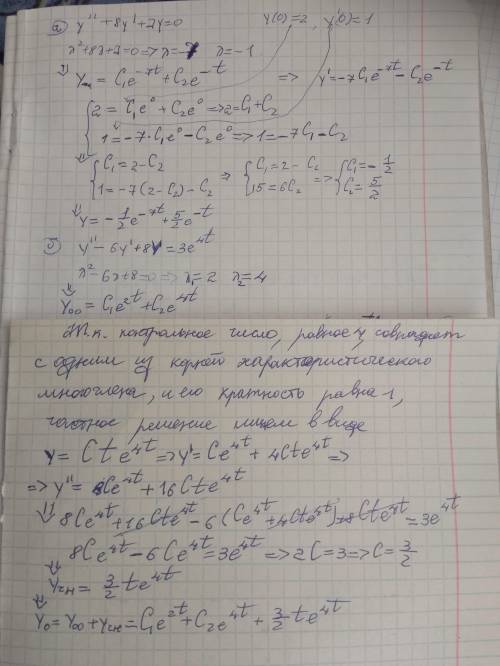 а) y'' + 8y' + 7y = 0   y(0) = 2, y'(0) = 1
λ² + 8λ + 7 = 0 => λ = -7   λ = -1
⇓ Y = C₁e^{-7t} + C₂e^{-t} => y' = -7C₁e^{-7t} - C₂e^{-t}
{ 2 = C₁e⁰ + C₂e⁰ => 2 = C₁ + C₂
1 = -7·C₁e⁰ - C₂e⁰ => 1 = -7C₁ - C₂
⇓ { C₁ = 2 - C₂
1 = -7(2 - C₂) - C₂
=> { C₁ = 2 - C₂
15 = 6C₂
=> { C₁ = -1/2
C₂ = 5/2
⇓ y = -1/2 e^{-7t} + 5/2 e^{-t}
б) y'' - 6y' + 8y = 3e^{4t}
λ² - 6λ + 8 = 0 => λ₁ = 2   λ₂ = 4
⇓ Yоо = C₁e^{2t} + C₂e^{4t}
Т.к. контрольное число, равное 4, совпадает
с одним из корней характеристического
многочлена, и его кратность равна 1,
частное решение ищем в виде
y = Cte^{4t} => y' = Ce^{4t} + 4Cte^{4t} =>
=> y'' = 8Ce^{4t} + 16Cte^{4t}
⇓ 8Ce^{4t} + 16Cte^{4t} - 6(Ce^{4t} + 4Cte^{4t}) + 8Cte^{4t} = 3e^{4t}
8Ce^{4t} - 6Ce^{4t} = 3e^{4t} => 2C = 3 => C = 3/2
⇓ Yчн = 3/2 te^{4t}
⇓ Yо = Yоо + Yчн = C₁e^{2t} + C₂e^{4t} + 3/2 te^{4t}